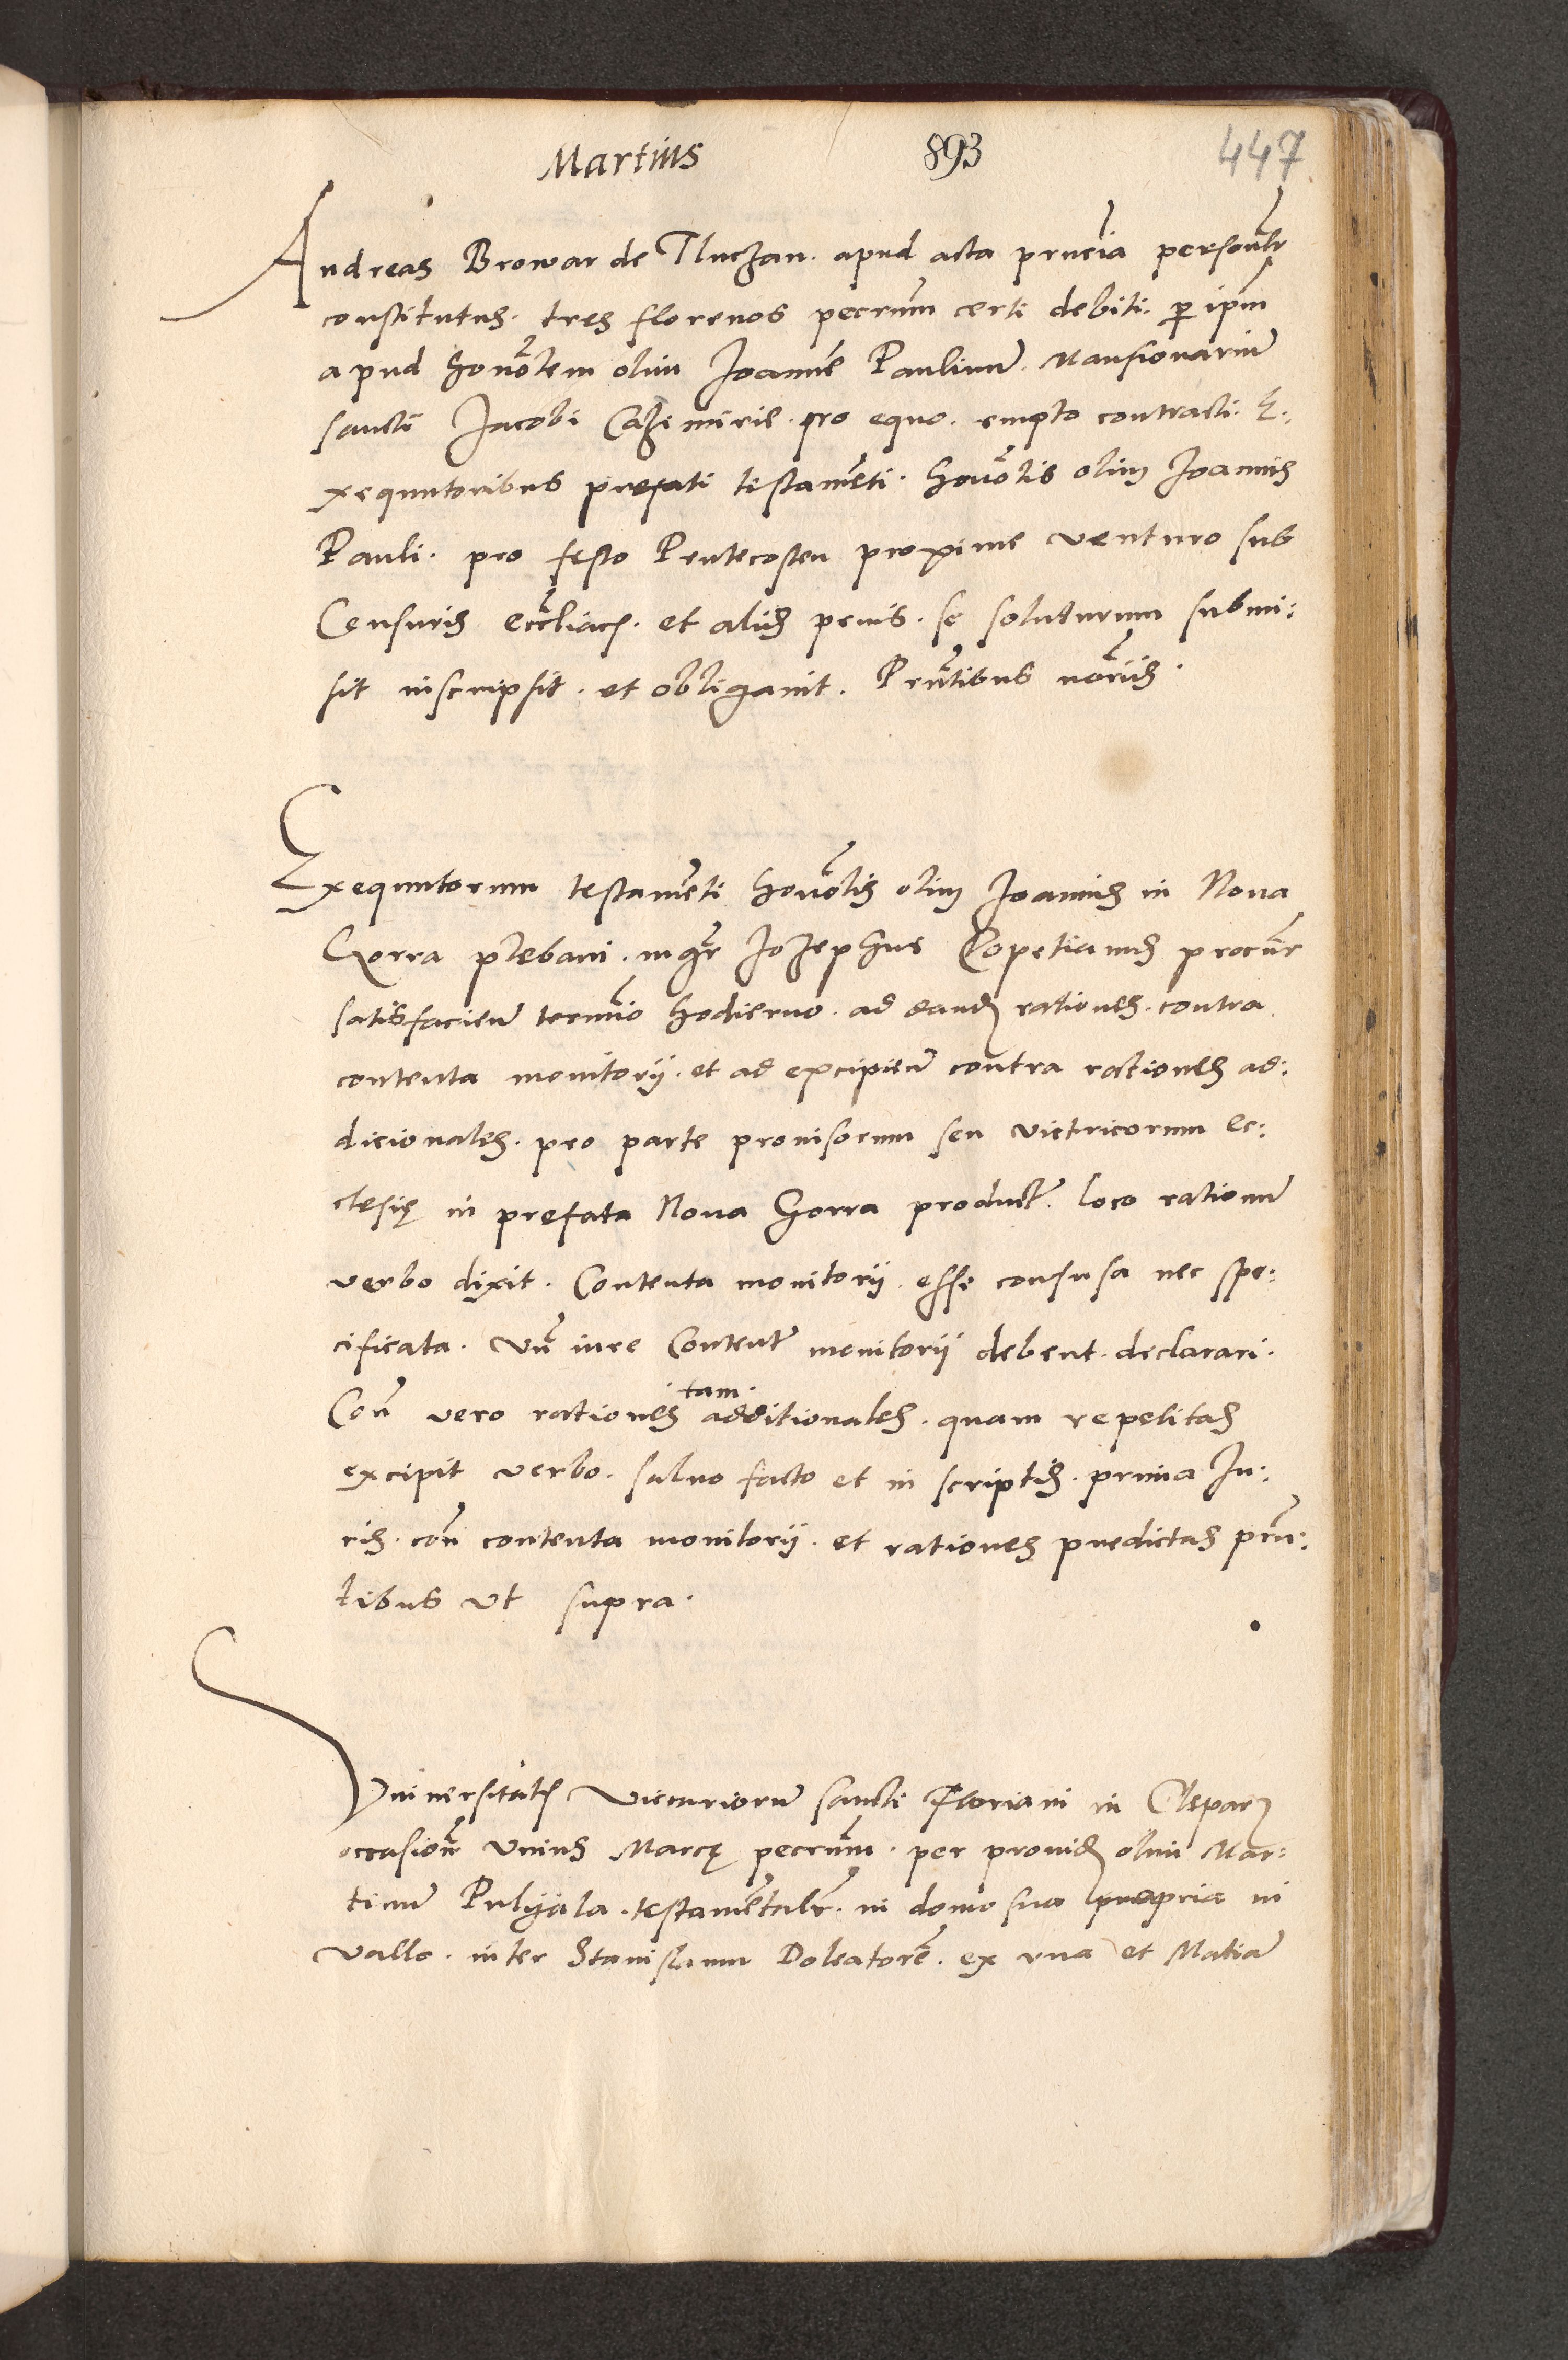 Martius 893 447
Andreas Browar de Tluczan. apud acta pruncia personlr
constitutus. tres florenos pecrum certi debiti. per ipm
apud honotem olim Joanne Paulinu. Mansionariu
sancti Jacobi Cazimirie. pro equo. empto contracti. E.
xequutoribus prefati testameti. honotis olim Joannis
Pauli. pro festo Pentecosten proxime venturo sub
Censuris eccliacs. et aliis penis. se soluturum submi:
sit inscripsit. et obligauit. Prntibus notriis.
Exequutorum testameti honotis olim Joannis in Noua
Gorra plebani. mgr Jozephus Copetianus procur
satisfacien termio hodierno. ad dand rationes. contra
contenta monitorij. et ad excipien contra rationes ad:
dicionales. pro parte prouisorum seu victricorum ec:
clesię in prefata Noua Gorra product. loco rationu
verbo dixit. Contenta monitorij. esse confusa nec spe:
cificata. Un iure Content monitorij debent. declarari.
Con vero rationes tam. additionales. quam repetitas
excipit verbo. saluo facto et in scriptis. prima Ju:
ris. con contenta monitorij. et rationes predictas prn:
tibus vt supra.
Vniuersitatis vicariorum sancti Floriani in Clepard
occasione vnius Marcę pecrum. per prouid olim Mar:
tinu Pulyala. testamentalr. in domo sua propria in
vallo. inter Stanislaum Doleatore. ex vna et Matia